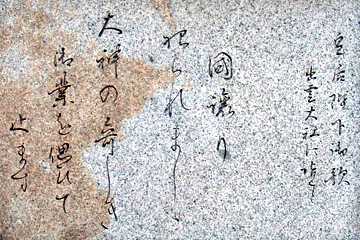 皇后陛下御歌
出雲大社に詣でて
国譲り
祀られましし
大神の奇しき
御業を偲びて
止まず